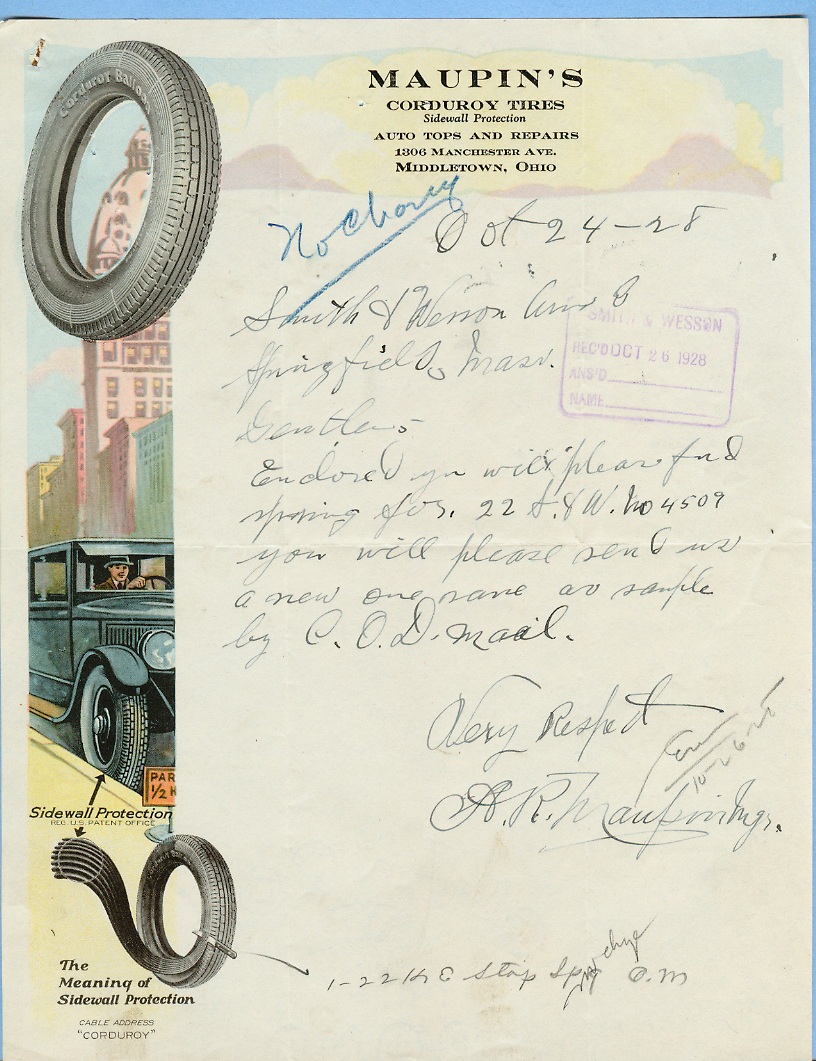 MAUPIN'S
CORDUROY TIRES
Sidewall Protection
AUTO TOPS AND REPAIRS
1306 MANCHESTER AVE.
MIDDLETOWN, OHIO
Corduroy Balloon
No Charg
Oct 24-28
Smith & Wesson Arms
Springfield, Mass.
SMITH & WESSON
REC'D OCT 26 1928
ANS'D
NAME
Gentlems
Enclosed you will please find
spring for. 22 S. & W. No 4509
you will please send us
a new one same as sample
by C. O. D. mail.
Very Respect
10-26-28
A. R. Maupin Mgr.
PAR
1/2 H
Sidewall Protection
REG. U.S. PATENT OFFICE
1-22 H E Stop Spg no chge O.M
The
Meaning of
Sidewall Protection
CABLE ADDRESS
"CORDUROY"